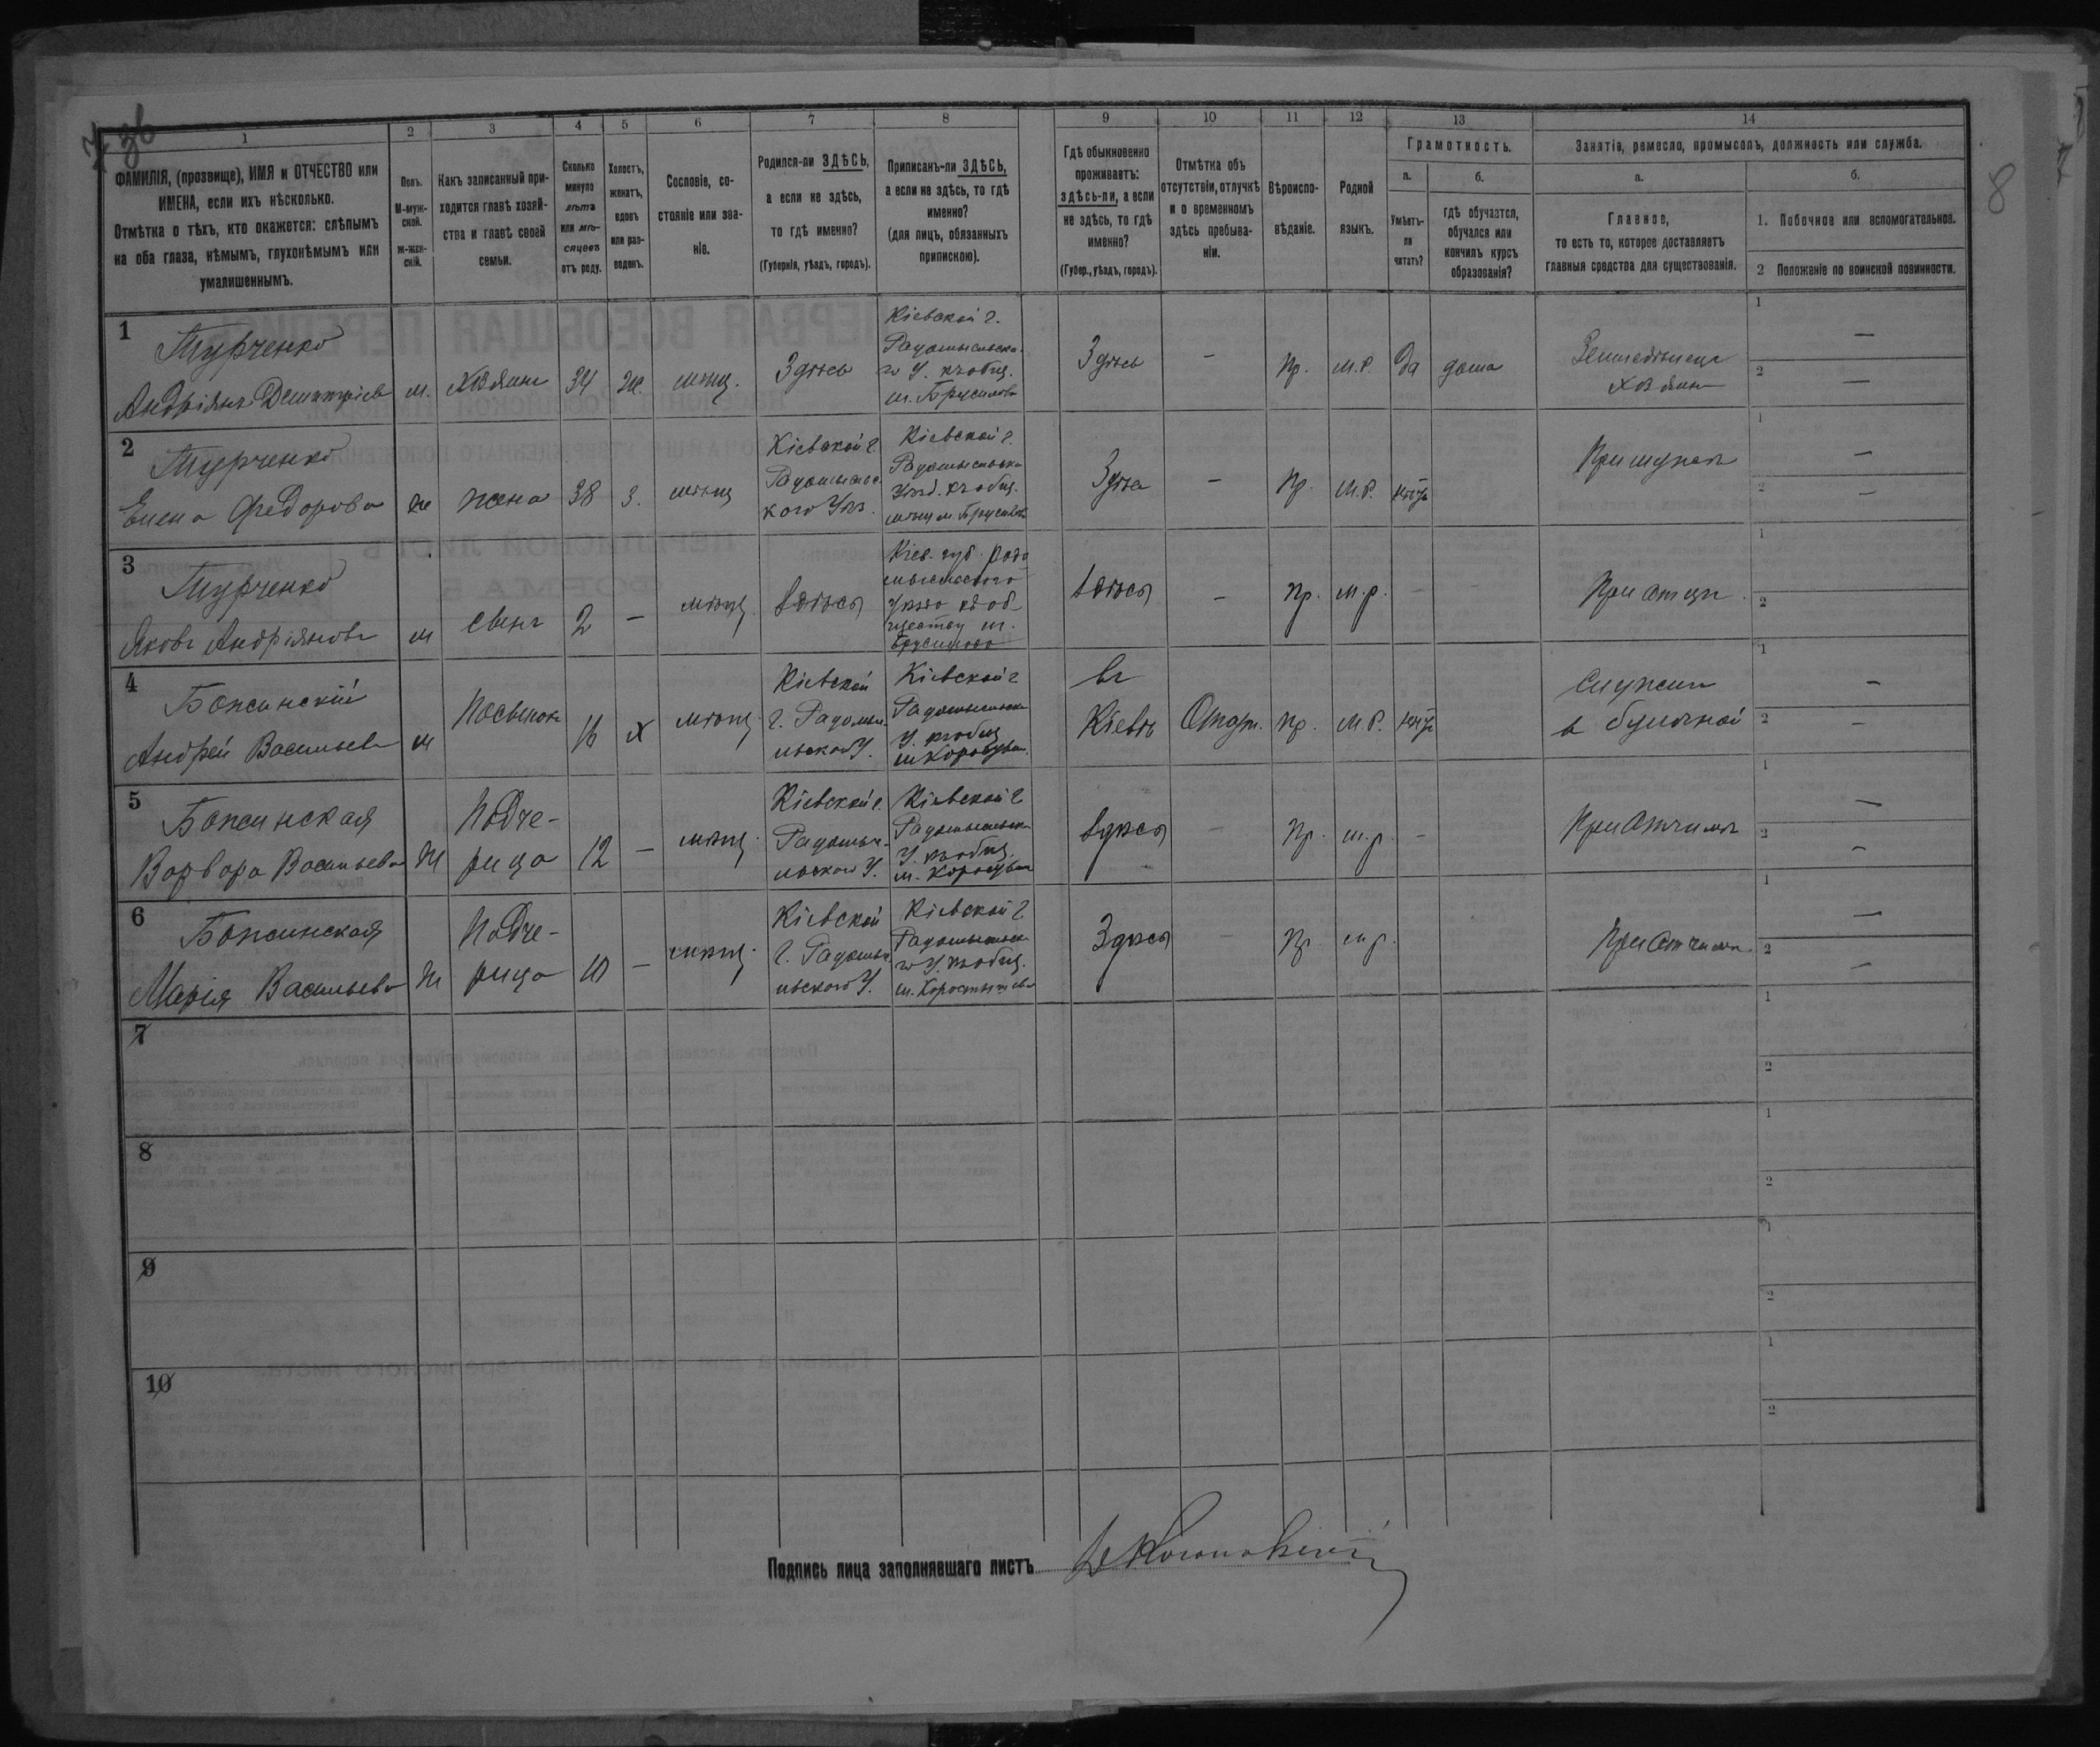 7 зб
8
1
ФАМИЛІЯ, (прозвище), ИМЯ и ОТЧЕСТВО или
ИМЕНА, если ихъ нѣсколько.
Отмѣтка о тѣхъ, кто окажется: слѣпымъ
на оба глаза, нѣмымъ, глухонѣмымъ или
умалишеннымъ.
2
Полъ.
М-муж-
ской.
ж-жен-
скій.
3
Какъ записанный при-
ходится главѣ хозяй-
ства и главѣ своей
семьи.
4
Сколько
минуло
лѣтъ
или мѣ-
сяцевъ
отъ роду.
5
Холостъ,
женатъ,
вдовъ
или раз-
веденъ.
6
Сословіе, со-
стояніе или зва-
ніе.
7
Родился-ли ЗДѢСЬ,
а если не здѣсь,
то гдѣ именно?
(Губернія, уѣздъ, городъ).
8
Приписанъ-ли ЗДѢСЬ,
а если не здѣсь, то гдѣ
именно?
(для лицъ, обязанныхъ
припискою).
9
Гдѣ обыкновенно
проживаетъ:
здѣсь-ли, а если
не здѣсь, то гдѣ
именно?
(Губер., уѣздъ, городъ).
10
Отмѣтка объ
отсутствіи, отлучкѣ
и о временномъ
здѣсь пребыва-
ніи.
11
Вѣроиспо-
вѣданіе.
12
Родной
языкъ.
13
Грамотность.
а.
Умѣетъ-
ли
читать?
б.
гдѣ обучается,
обучался или
кончилъ курсъ
образованія?
14
Занятіе, ремесло, промыселъ, должность или служба.
а.
Главное,
то есть то, которое доставляетъ
главныя средства для существованія.
б.
1. Побочное или вспомогательное.
2 Положеніе по воинской повинности.
1
Турченко
Андріянъ Дмитріев
м.
Хозяинъ
34
ж.
мѣщ.
Здѣсь
Кіевской г.
Радомысльска-
го У. къ общ.
м. Брусилова
Здѣсь
–
пр.
м.р.
Да
дома
Земледѣлецъ
хозяинъ
1 —
2 —
2
Турченко
Елена Федорова
ж
жена
38
з.
мѣщ
Кіевской г.
Радомысльс
кого Уѣз.
Кіевской г.
Радомысльска
Уѣзд. къ общ.
мѣщ м. Брусилов
Здѣсь
–
пр.
м.р.
нѣтъ
При мужѣ
1 —
2 —
3
Турченко
Яковъ Андріяновъ
м
сынъ
2
–
мѣщ
вдѣсь
Кіев. губ. Радо
мысльского
Уѣзда къ об
ществу м.
Брусилова
вдѣсь
–
пр.
м.р.
–
–
При отцѣ
1
2
4
Божинскій
Андрей Васильев
м
Пасынок
16
х
мѣщ.
Кіевской
г. Радомыс
льского У.
Кіевской г
Радомысльска
У. къ общ
въ
Кіевѣ
Отлуч.
пр.
м.р.
нѣтъ
Служить
в булочной
1 —
2 —
5
Божинская
Варвара Васильева
ж
Падче-
рица
12
–
мѣщ.
Кіевской г.
Радомыс-
льского У.
Кіевской г
Радомысльск
У. къ общ.
вдѣсь
–
пр.
м.р.
–
При Отчимѣ
1 —
2 —
6
Божинская
Марія Васильева
ж
Падче-
рица
10
–
мѣщ.
Кіевской
г. Радомыс
льского У.
Кіевской г
Радомысльск
го У. къ общ.
м. Коростышева
Здѣсь
–
пр
м.р.
При Отчимѣ
1 —
2 —
7
1
2
8
1
2
9
1
2
10
1
2
Подпись лица заполнявшаго листъ